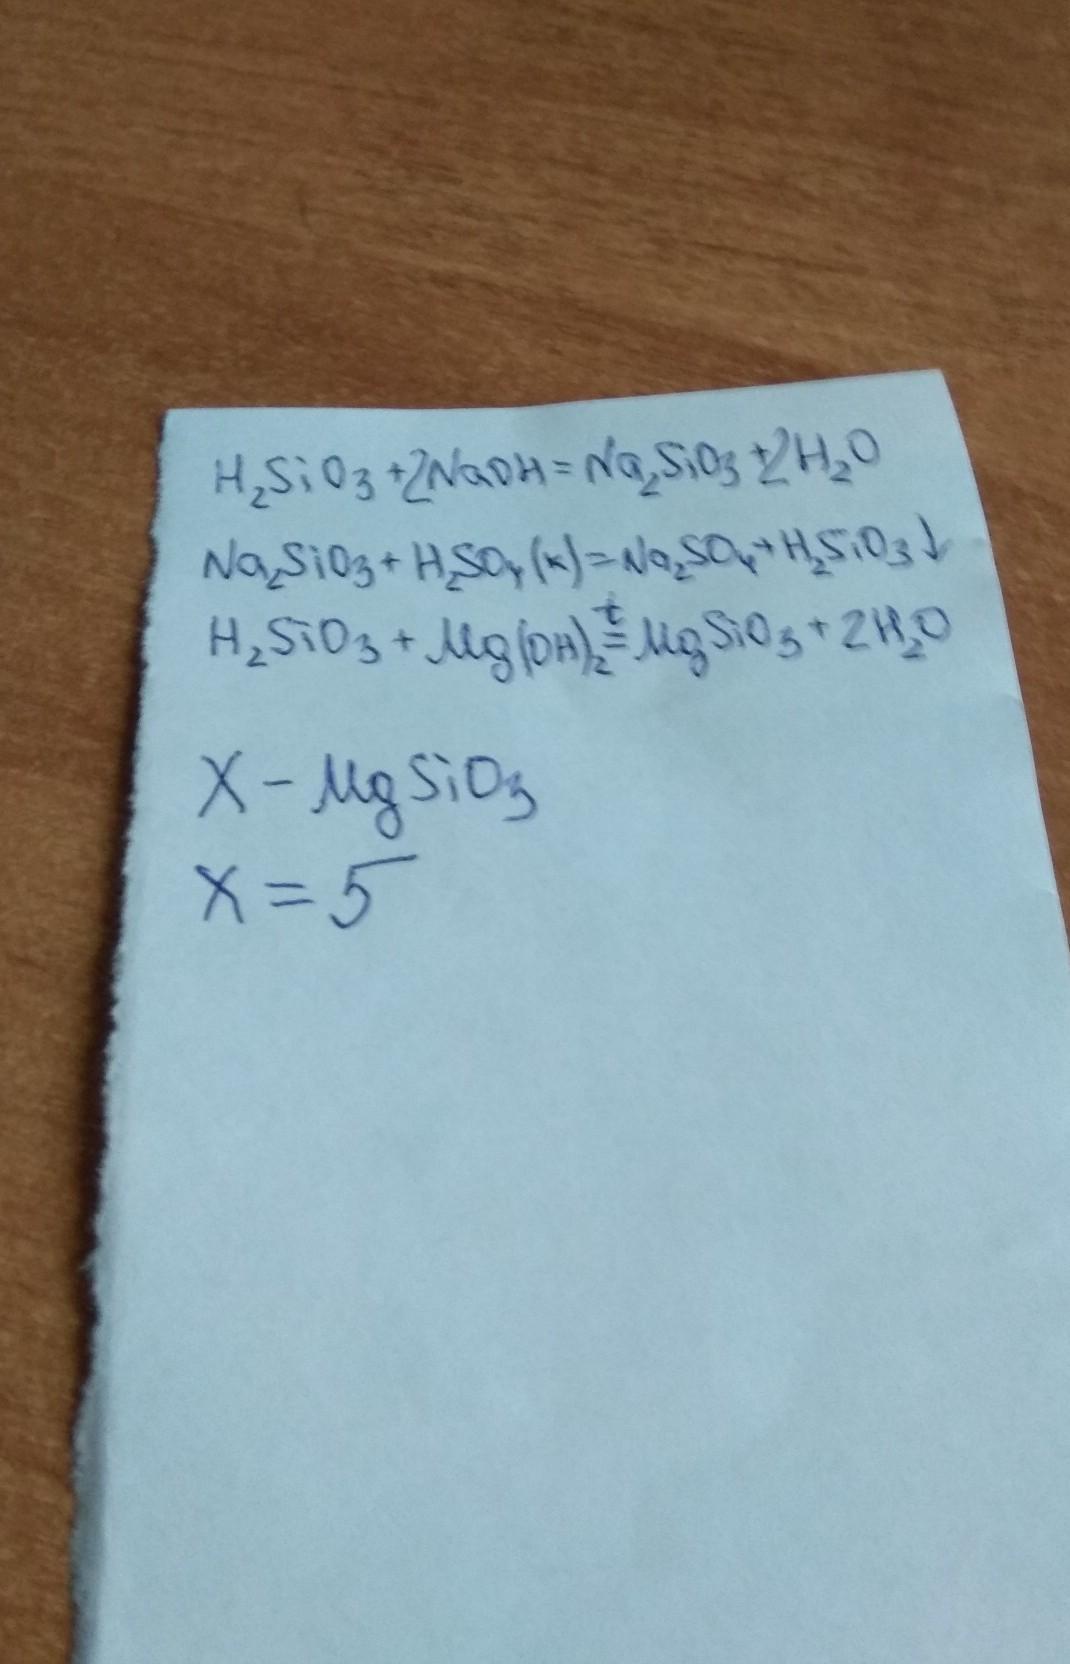 H₂SiO₃ + 2NaOH = Na₂SiO₃ + 2H₂O
Na₂SiO₃ + H₂SO₄(к) = Na₂SO₄ + H₂SiO₃↓
H₂SiO₃ + Mg(OH)₂ =ᵗ MgSiO₃ + 2H₂O
X - MgSiO₃
X = 5